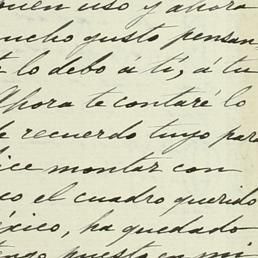 buen uso y ahora
mucho gusto pensan
lo debo á tí, á tu
Ahora te contaré lo
recuerdo tuyo para
hice montar con
co el cuadro querido
éxico, ha quedado
tengo puesto en mi